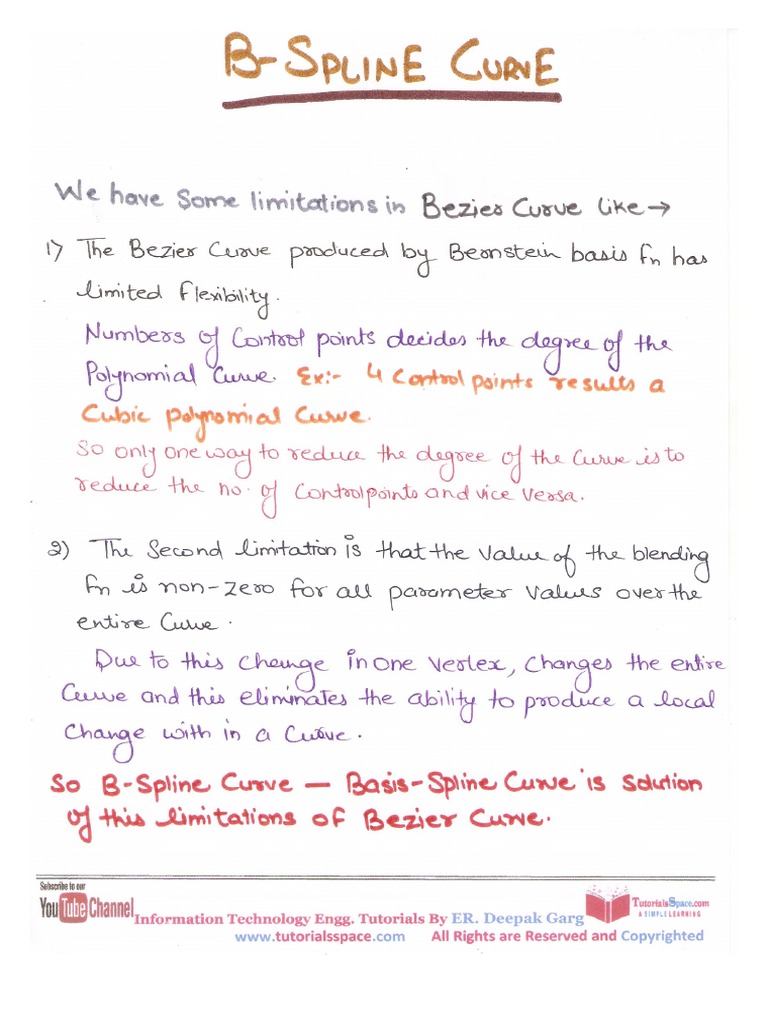 B-SPLINE CURVE
We have Some limitations in Bezier Curve like →
1) The Bezier Curve produced by Bernstein basis fn has
limited flexibility.
Numbers of Control points decides the degree of the
Polynomial Curve. Ex:- 4 Control points results a
Cubic polynomial Curve.
So only one way to reduce the degree of the Curve is to
reduce the no. of Control points and vice versa.
2) The Second limitation is that the value of the blending
fn is non-zero for all parameter values over the
entire Curve.
Due to this change in one vertex, changes the entire
Curve and this eliminates the ability to produce a local
Change with in a Curve.
So B-Spline Curve — Basis-Spline Curve is solution
of this limitations of Bezier Curve.
Subscribe to our
YouTube Channel
Information Technology Engg. Tutorials By ER. Deepak Garg
TutorialsSpace.com
A SIMPLE LEARNING
www.tutorialsspace.com All Rights are Reserved and Copyrighted